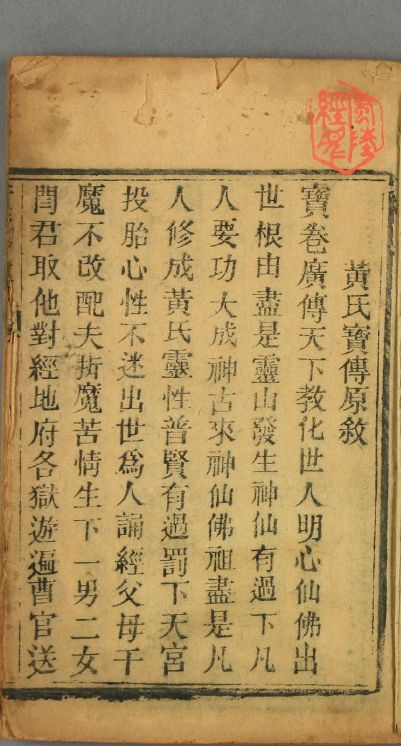 黃氏寶傳原敘
寶卷廣傳天下教化世人明心仙佛出
世根由盡是靈山發生神仙有過下凡
人要功大成神古來神仙佛祖盡是凡
人修成黃氏靈性普賢有過罰下天宮
投胎心性不迷出世爲人誦經父母干
魔不改配夫折魔苦情生下一男二女
閆君取他對經地府各獄遊遍曹官送